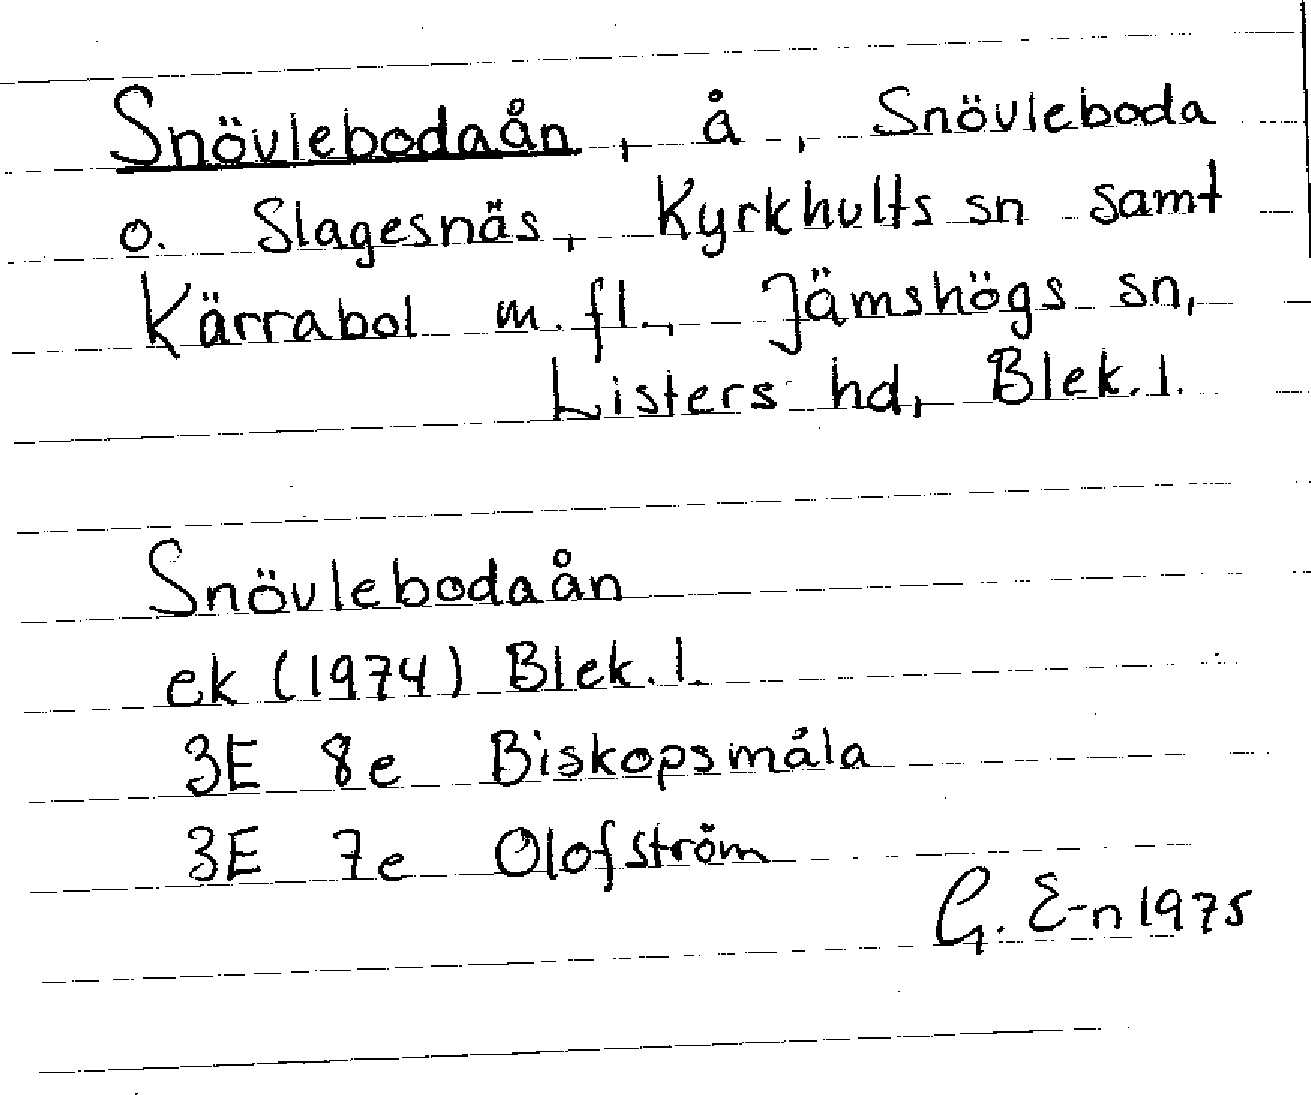 Snövlebodaån, å, Snövleboda
o. Slagesnäs, Kyrkhults sn samt
Kärrabol m.fl., Jämshögs sn,
Listers hd, Blek.l.
Snövlebodaån
ek (1974) Blek.l.
3E 8e Biskopsmåla
3E 7e Olofström
G. E-n 1975